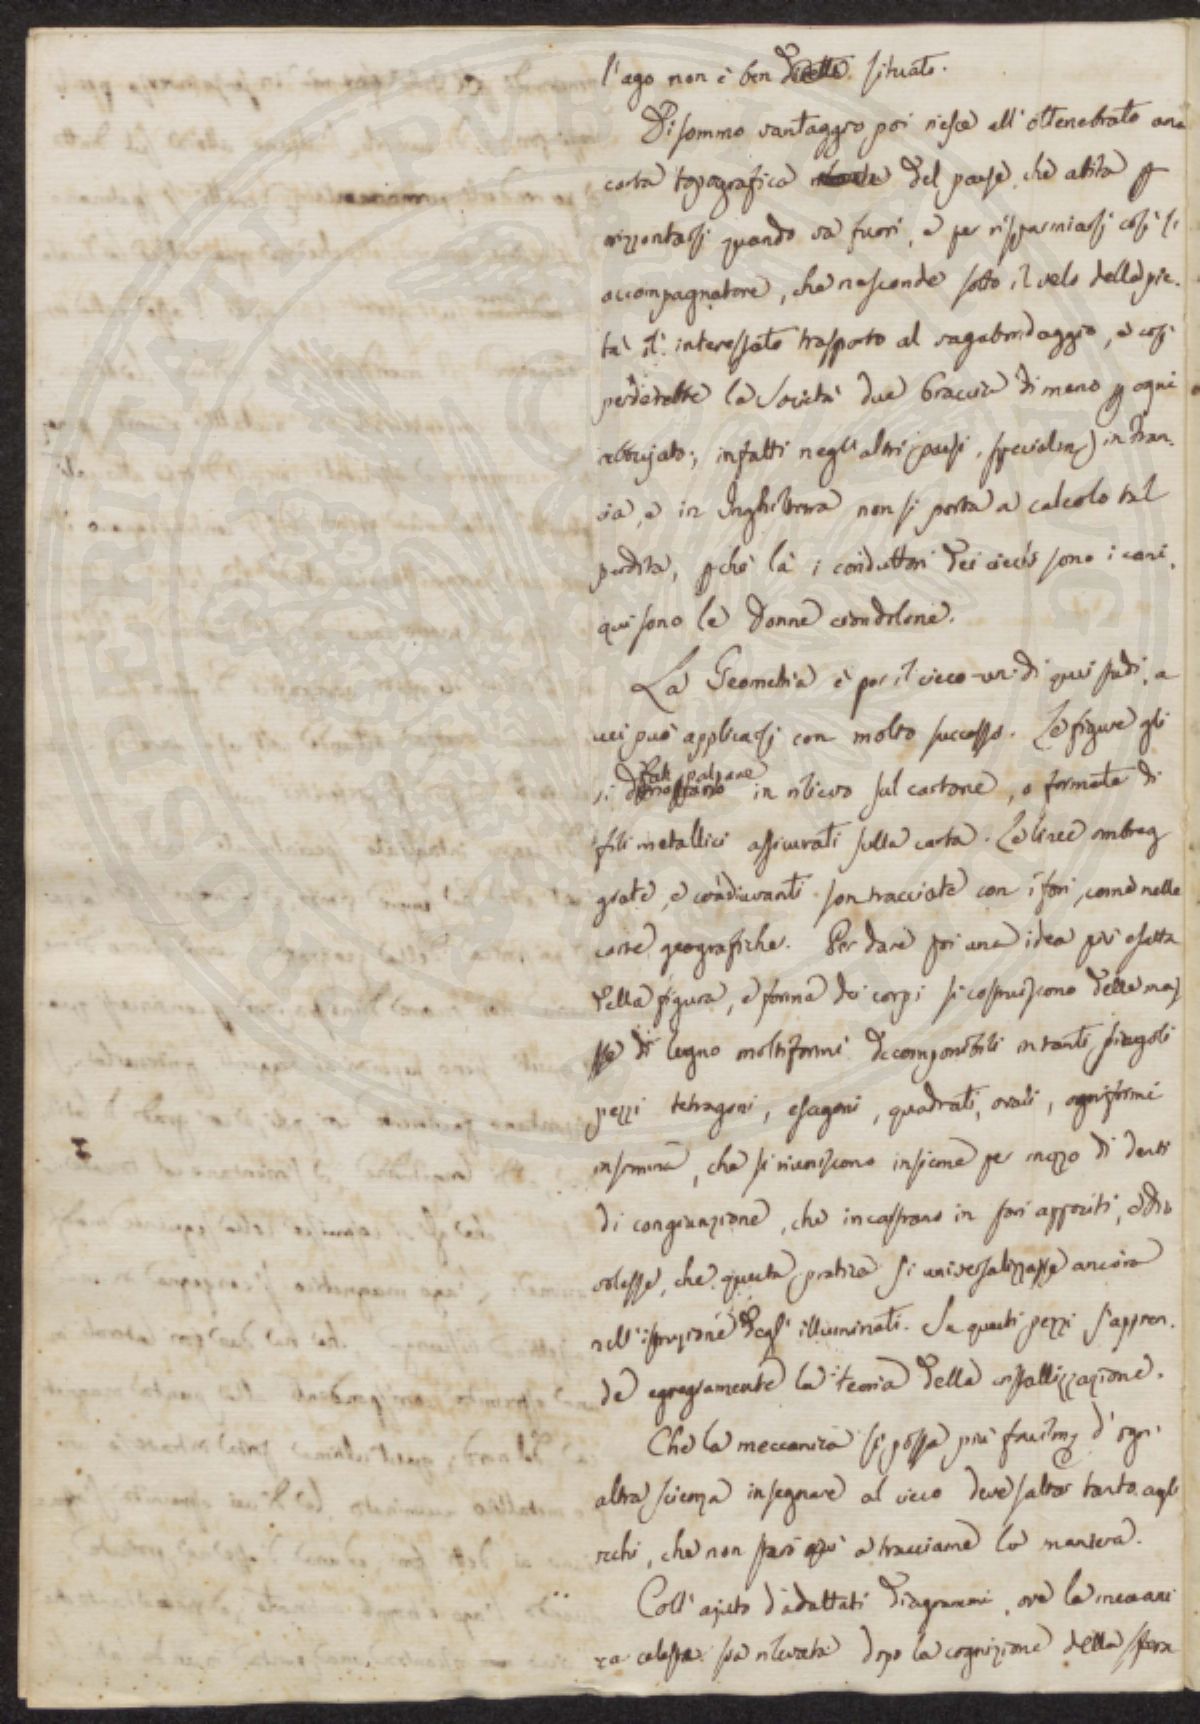 l'ago non è ben situato.
Di sommo vantaggio poi riesce all'ottenebrato una
carta topografica del paese, che abita p
orizzontarsi quando va fuori, e per risparmiarsi così l'
accompagnatore, che nasconde sotto il velo della pie-
tà l'interessato trasporto al vagabondaggio, e così
perderebbe la Società due braccia di meno p ogni
abbujato; infatti negli altri paesi, specialm in Fran-
cia, e in Inghilterra non si porta a calcolo tal
perdita, pchè là i conduttori dei ciechi sono i cani,
qui sono le donne ciondolone.
La Geometria è per il cieco un di quei studi, a
cui può applicarsi con molto successo. Le figure gli
si fan palpare in rilievo sul cartone, o formate di
fili metallici assicurati sulla carta. Le linee ombreg
giate, e coadiuvanti son tracciate con i fori, come nelle
carte geografiche. Per dare poi una idea più esatta
della figura, e forma dei corpi si costruiscono delle mas
sse di legno moltiformi decomponibili in tanti piccoli
pezzi tetragoni, esagoni, quadrati, ovali, ogniformi
insomma, che si riuniscono insieme per mezzo di denti
di congiunzione, che incastrano in fori appositi, e Dio
volesse, che questa pratica si universalizzasse ancora
nell'istruzione degl'illuminati. Su questi pezzi s'appren-
de egregiamente la teoria della cristallizzazione.
Che la meccanica si possa più facilm d'ogni
altra scienza insegnare al cieco deve saltar tanto agli
occhi, che non starò qui a tracciarne la maniera.
Coll'ajuto d'adattati diagrammi, ove la meccani
ca celeste sia rilevata dopo la cognizione della sfera